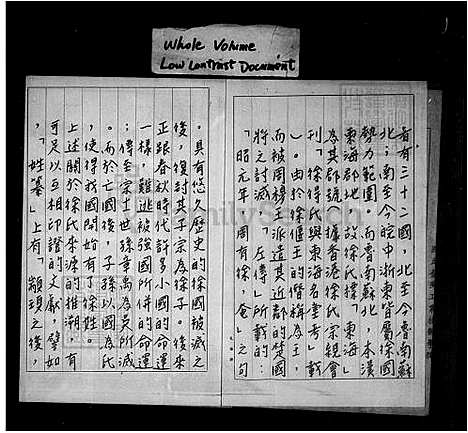 Whole Volume
Low Contrast Document
者有三十二國,北至今魯南蘇
北;南至今皖中浙東皆屬徐國
勢力範圍。而魯南蘇北,本漢
東海郡地,故徐氏標「東海」
為其郡號。據香港徐氏宗親會
刊「徐得氏與東海名堂考」載
)。由於徐偃王的僭稱為王,
而被周穆王派造其近郡的楚國
將之討滅。「左傳」所載的:
「昭元年,周有徐,奄」之句
。具有悠久歷史的徐國被滅之
後,復封其子宗為徐子。後來
正跟春秋時代許多小國的命運
一樣,難逃被強國所併的命運
;傳至宗十一世孫章禹為吳所滅
。而於亡國後,子孫以國為氏
,使得我國開始有了徐姓。
上述關於徐氏李源的推溯,有
可足以互相印證的文獻,譬如
,「姓纂」上有「顓頊之後,